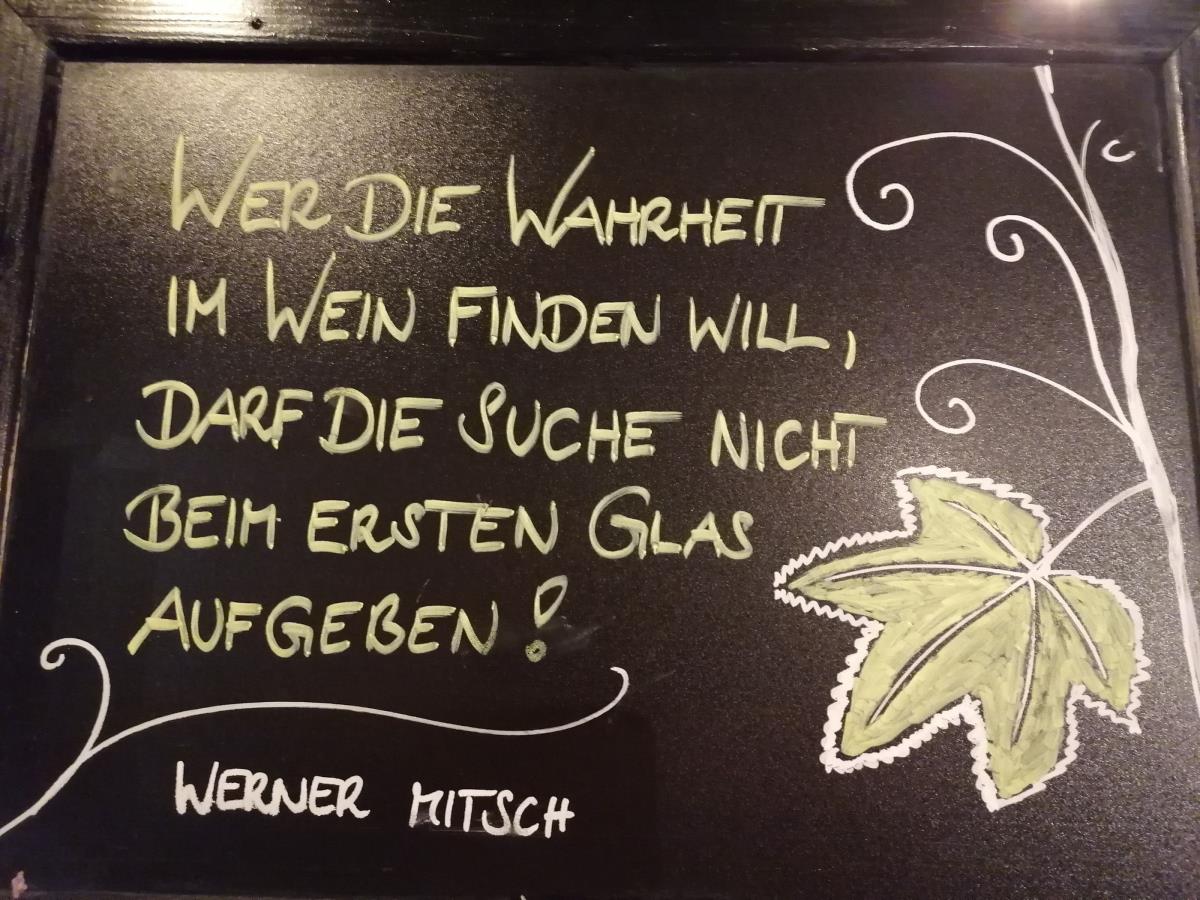 WER DIE WAHRHEIT
IM WEIN FINDEN WILL,
DARF DIE SUCHE NICHT
BEIM ERSTEN GLAS
AUFGEBEN!
WERNER MITSCH